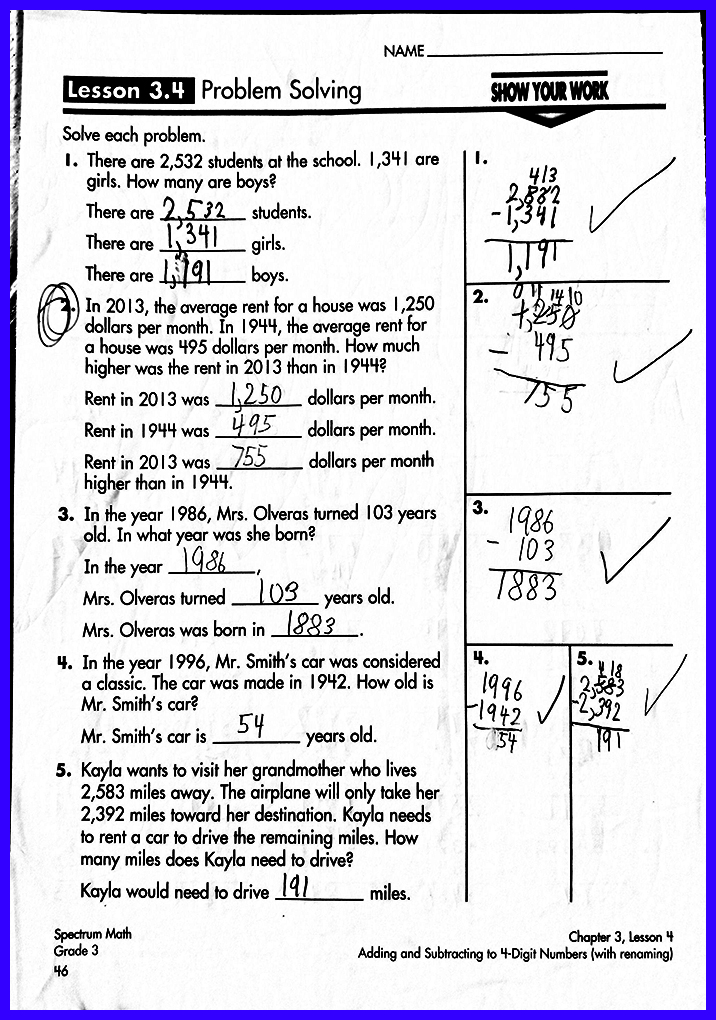 NAME
Lesson 3.4 Problem Solving
SHOW YOUR WORK
Solve each problem.
1. There are 2,532 students at the school. 1,341 are
girls. How many are boys?
There are 2,532 students.
There are 1,341 girls.
There are 1,191 boys.
2. In 2013, the average rent for a house was 1,250
dollars per month. In 1944, the average rent for
a house was 495 dollars per month. How much
higher was the rent in 2013 than in 1944?
Rent in 2013 was 1,250 dollars per month.
Rent in 1944 was 495 dollars per month.
Rent in 2013 was 755 dollars per month
higher than in 1944.
3. In the year 1986, Mrs. Olveras turned 103 years
old. In what year was she born?
In the year 1986,
Mrs. Olveras turned 103 years old.
Mrs. Olveras was born in 1883.
4. In the year 1996, Mr. Smith's car was considered
a classic. The car was made in 1942. How old is
Mr. Smith's car?
Mr. Smith's car is 54 years old.
5. Kayla wants to visit her grandmother who lives
2,583 miles away. The airplane will only take her
2,392 miles toward her destination. Kayla needs
to rent a car to drive the remaining miles. How
many miles does Kayla need to drive?
Kayla would need to drive 191 miles.
1.
413
-1,341
1,191
2.
0 11 14 10
1,250
- 495
755
3.
1986
- 103
1883
4.
1996
-1942
54
5.
18
2,583
-2,392
191
Spectrum Math
Grade 3
46
Chapter 3, Lesson 4
Adding and Subtracting to 4-Digit Numbers (with renaming)